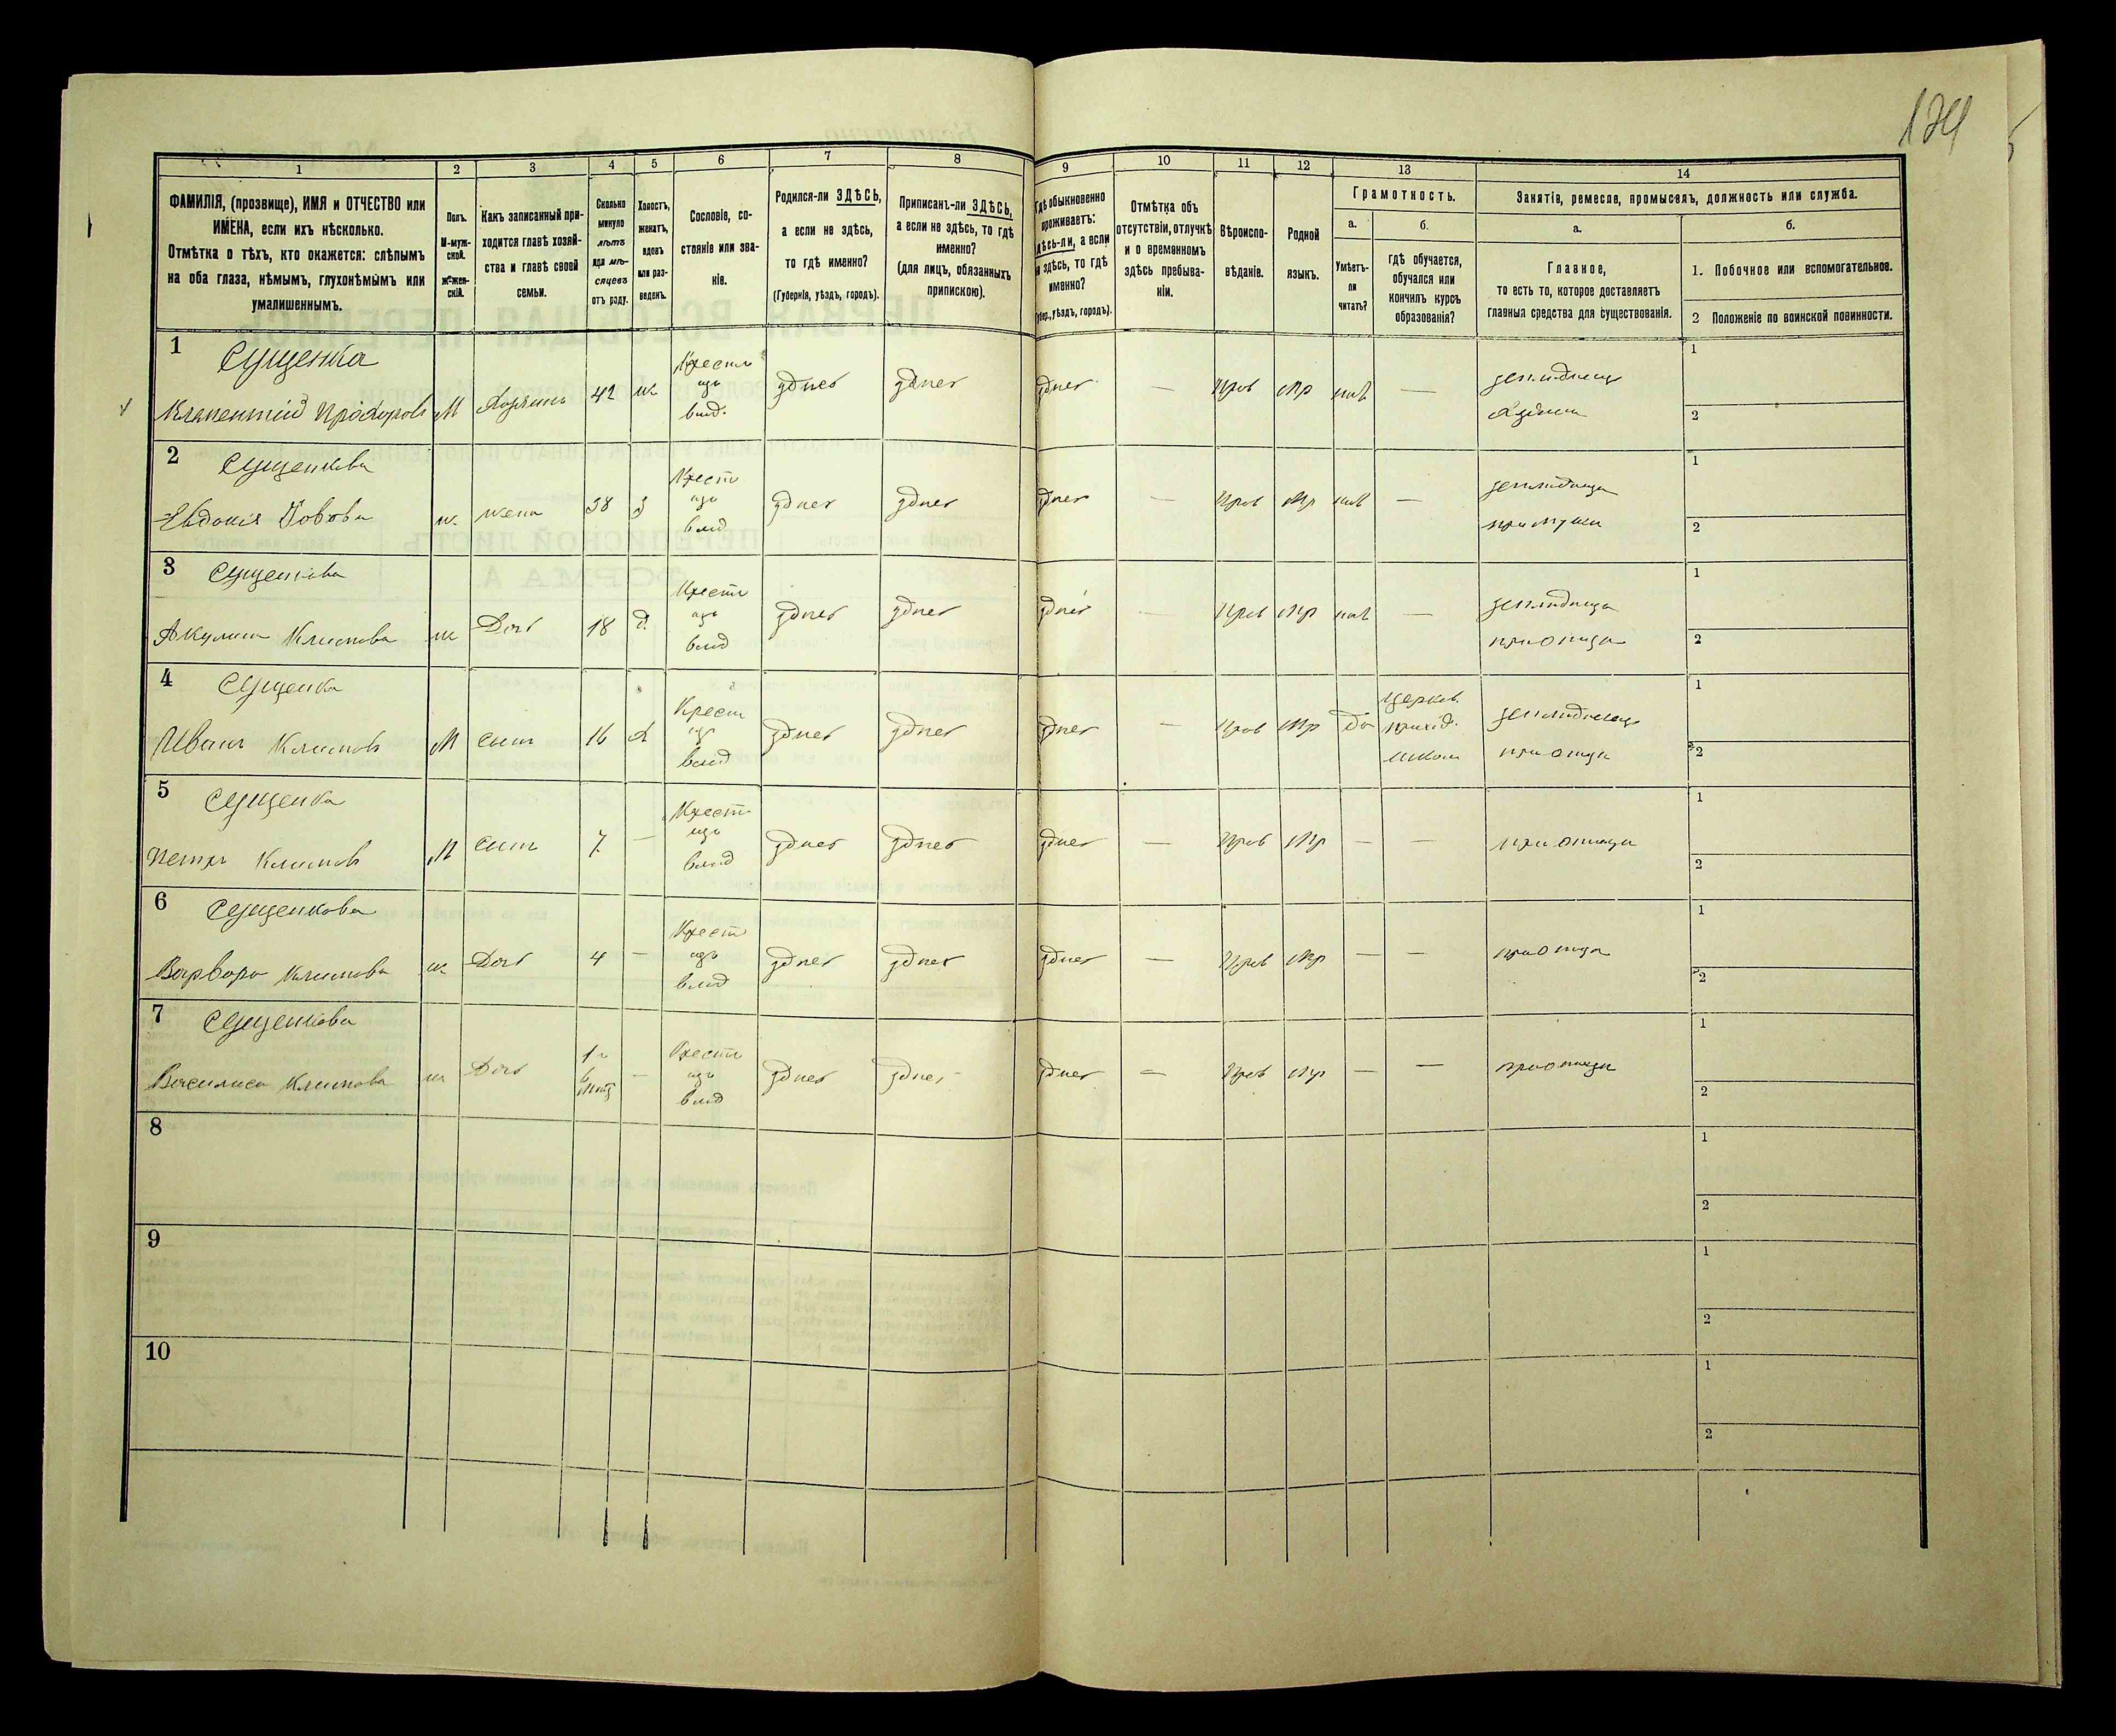 124
1
2
3
4
5
6
7
8
9
10
11
12
13
14
ФАМИЛІЯ, (прозвище), ИМЯ и ОТЧЕСТВО или
ИМЕНА, если ихъ нѣсколько.
Отмѣтка о тѣхъ, кто окажется: слѣпымъ
на оба глаза, нѣмымъ, глухонѣмымъ или
умалишеннымъ.
Полъ.
М-муж-
ской.
Ж-жен-
скій.
Какъ записанный при-
ходится главѣ хозяй-
ства и главѣ своей
семьи.
Сколько
минуло
лѣтъ
или мѣ-
сяцевъ
отъ роду.
Холостъ,
женатъ,
вдовъ
или раз-
веденъ.
Сословіе, со-
стояніе или зва-
ніе.
Родился-ли ЗДѢСЬ,
а если не здѣсь,
то гдѣ именно?
(Губернія, уѣздъ, городъ).
Приписанъ-ли ЗДѢСЬ,
а если не здѣсь, то гдѣ
именно?
(для лицъ, обязанныхъ
припискою).
Гдѣ обыкновенно
проживаетъ:
здѣсь-ли, а если
не здѣсь, то гдѣ
именно?
(Губер., уѣздъ, городъ).
Отмѣтка объ
отсутствіи, отлучкѣ
и о временномъ
здѣсь пребыва-
ніи.
Вѣроиспо-
вѣданіе.
Родной
языкъ.
Грамотность.
а.
Умѣетъ-
ли
читать?
б.
гдѣ обучается,
обучался или
кончилъ курсъ
образованія?
Занятіе, ремесло, промыселъ, должность или служба.
а.
Главное,
то есть то, которое доставляетъ
главныя средства для существованія.
б.
1. Побочное или вспомогательное.
2 Положеніе по воинской повинности.
1
Сущенка
Прохоровъ М Хозяинъ 42 ж Крестъ изъ влад. здѣсь здѣсь здѣсь — Прав Мр нѣтъ — земледѣлецъ хозяинъ
1
2
2
Сущенкова
Евдокія ж. жена 38 з Крест изъ влад здѣсь здѣсь здѣсь — Прав Мр нѣтъ — земледѣлица при мужѣ
1
2
3
Сущенкова
Акулина Климова ж Дочь 18 д. Крест изъ влад здѣсь здѣсь здѣсь — Прав Мр нѣтъ — земледѣлица при отцѣ
1
2
4
Сущенка
Иванъ Климовъ М сынъ 16 х Крест изъ влад здѣсь здѣсь здѣсь — Прав Мр да церков. приход. школ земледѣлецъ при отцѣ
1
2
5
Сущенка
Петръ Климовъ М сынъ 7 — Крест изъ влад здѣсь здѣсь здѣсь — Прав Мр — — при отцѣ
1
2
6
Сущенкова
Варвара Климова ж Дочь 4 — Крест изъ влад здѣсь здѣсь здѣсь — Прав Мр — — при отцѣ
1
2
7
Сущенкова
Василиса Климова ж Дочь 1 г 6 — Крест изъ влад здѣсь здѣсь здѣсь — Прав Мр — — при отцѣ
1
2
8
1
2
9
1
2
10
1
2